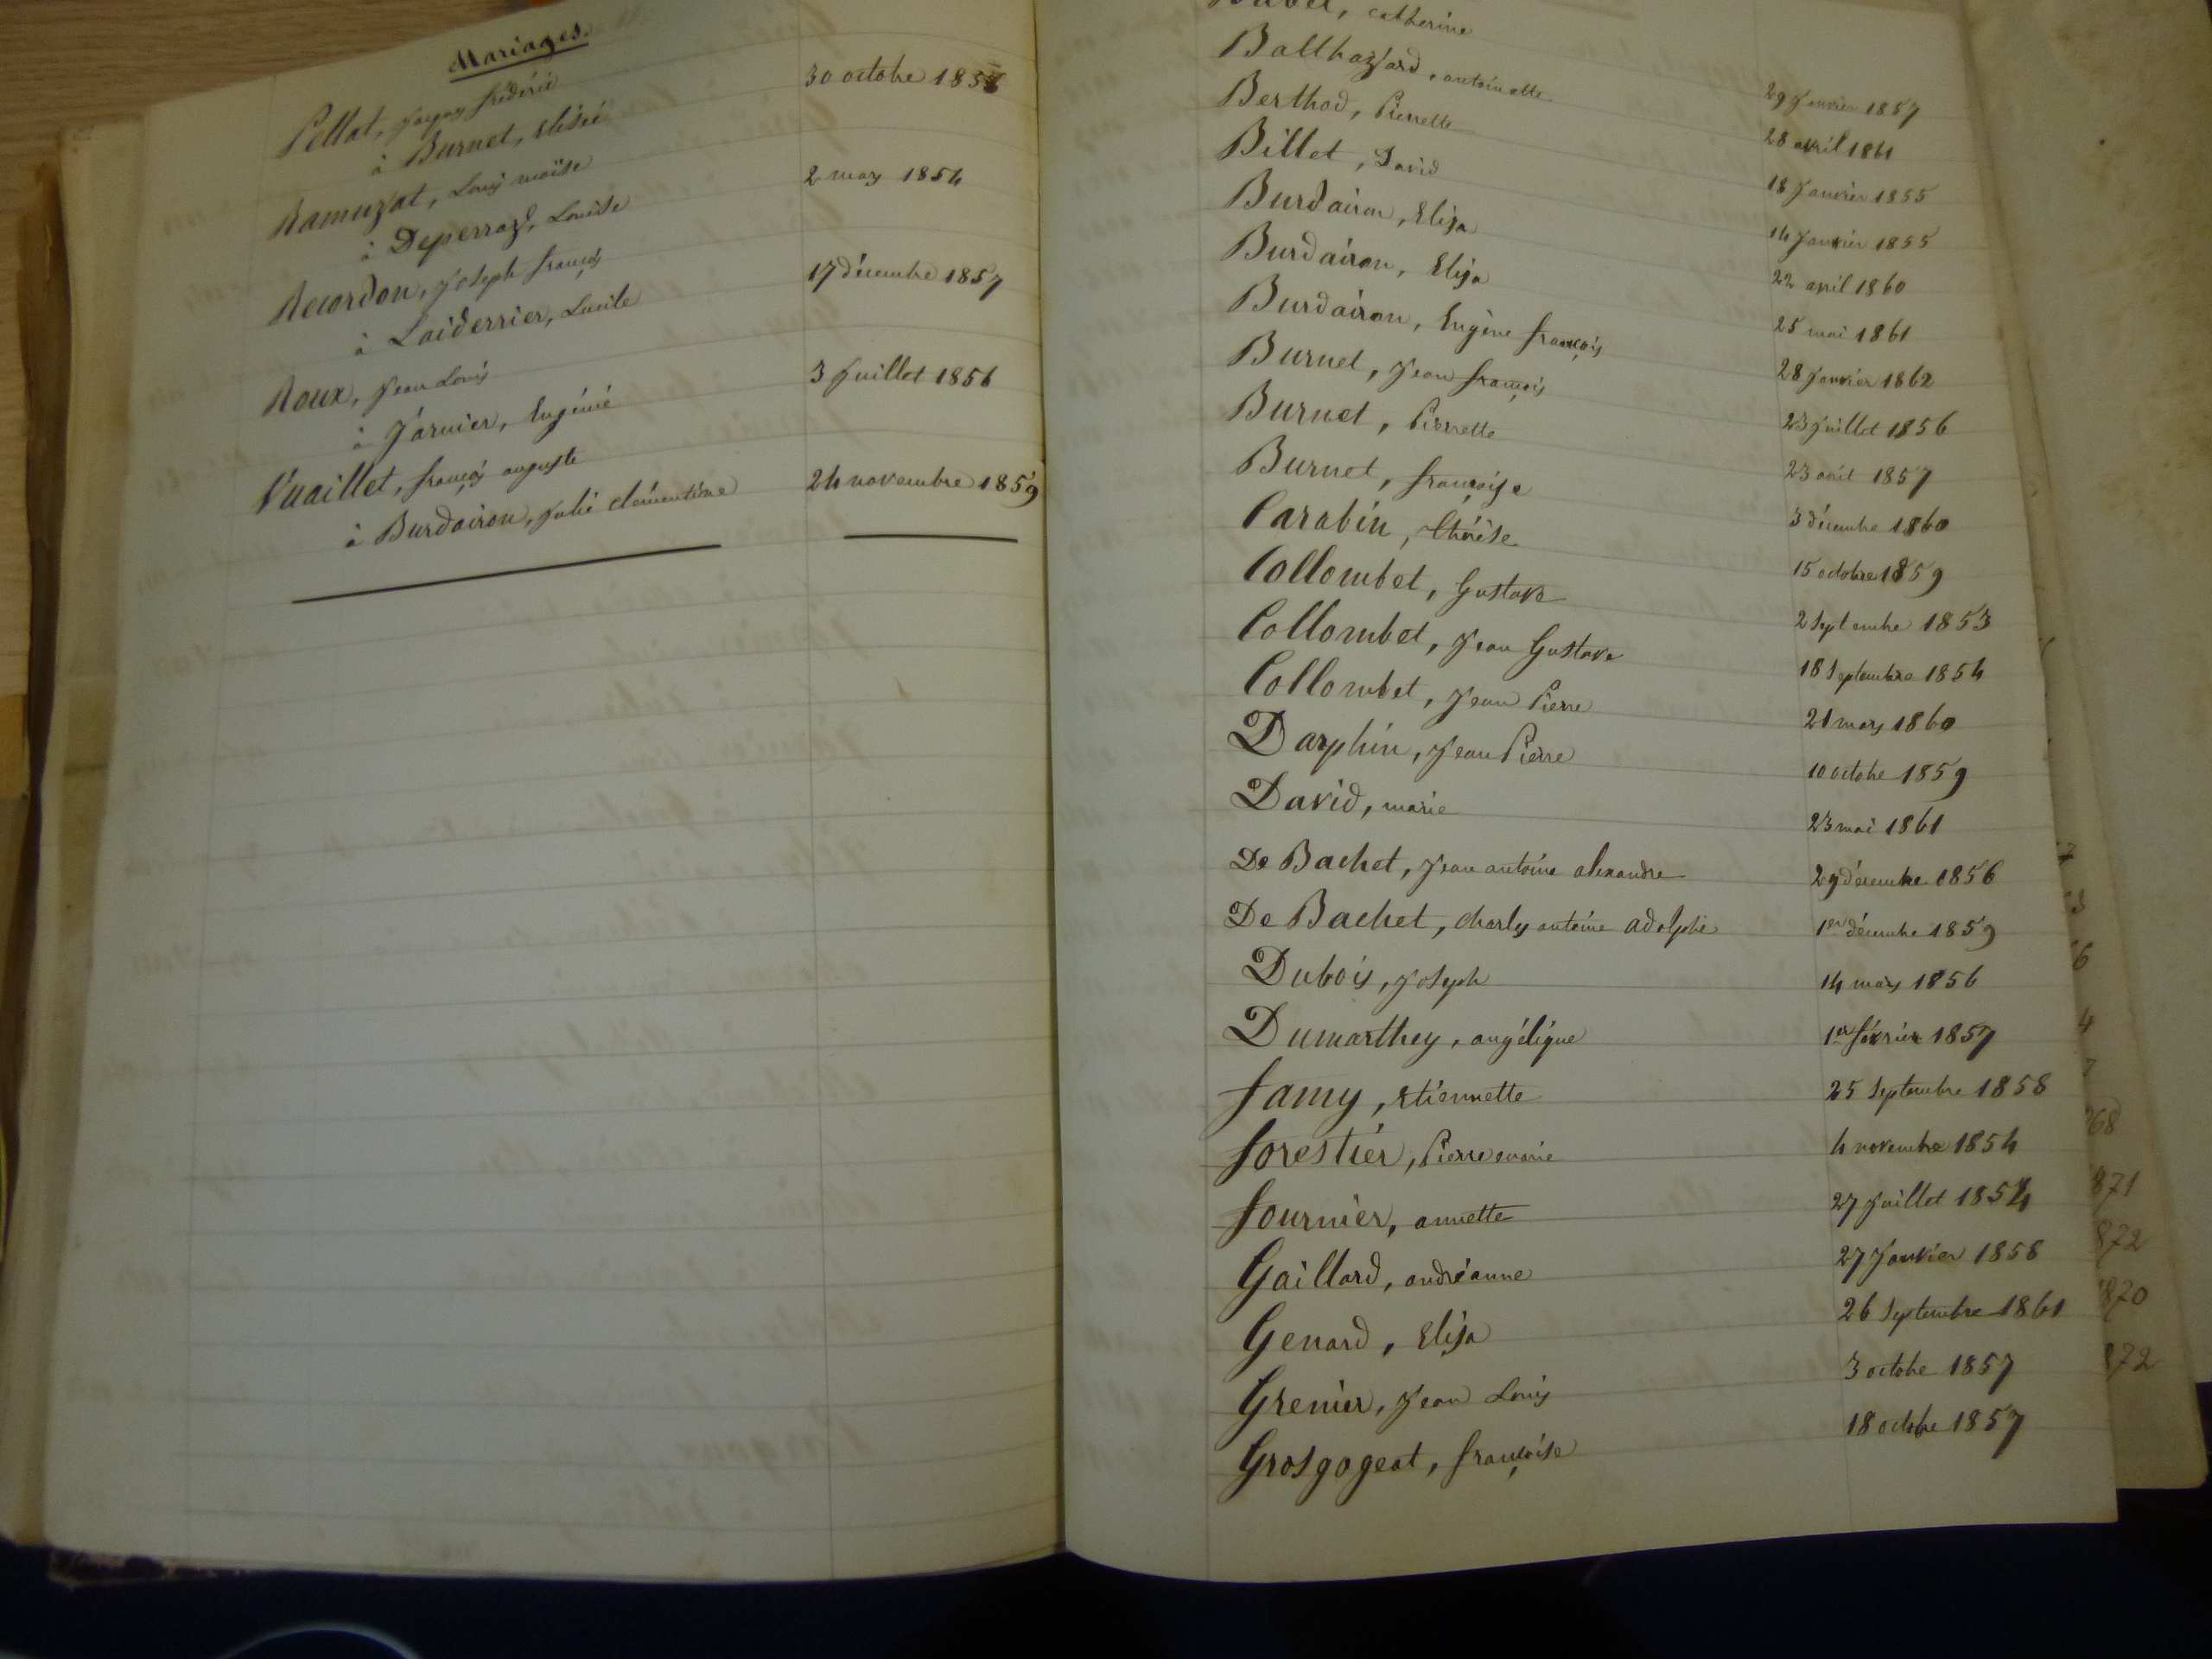 Mariages.
Pellat, Jaques frédéric
à Burnet, Elisée 30 octobre 1856
Ramuzat, Louis moïse
à Deperraz, Louise 2 mars 1854
Recordon, Joseph françois
à Laiderrier, Lucile 17 décembre 1857
Roux, Jean Louis
à Jarnier, Eugénie 3 Juillet 1856
Vuaillet, françois auguste
à Burdairon, Julie clémentine 24 novembre 1859
Babel, catherine 29 Janvier 1857
Balthazard, antoinette 28 avril 1861
Berthod, Pierrette 18 Janvier 1855
Billet, David 14 Janvier 1855
Burdairon, Elisa 22 avril 1860
Burdairon, Elisa 25 mai 1861
Burdairon, Eugène françois 28 Janvier 1862
Burnet, Jean françois 23 Juillet 1856
Burnet, Pierrette 23 avril 1857
Burnet, françoise 3 décembre 1860
Carabin, thérèse 15 octobre 1859
Collombet, Gustave 2 Septembre 1853
Collombet, Jean Gustave 18 Septembre 1854
Collombet, Jean Pierre 21 mars 1860
Darphin, Jean Pierre 10 octobre 1859
David, marie 23 mai 1861
De Bachet, Jean antoine alexandre 29 décembre 1856
De Bachet, charles antoine adolphe 1er décembre 1859
Dubois, Joseph 14 mars 1856
Dumarthey, angélique 1er février 1857
famy, Etiennette 25 Septembre 1858
forestier, Pierre 4 novembre 1854
fournier, annette 27 Juillet 1854
Gaillard, andréanne 27 Janvier 1858
Genard, Elisa 26 Septembre 1861
Grenier, Jean Louis 3 octobre 1857
Grosgogeat, françoise 18 octobre 1857
868
871
872
870
872